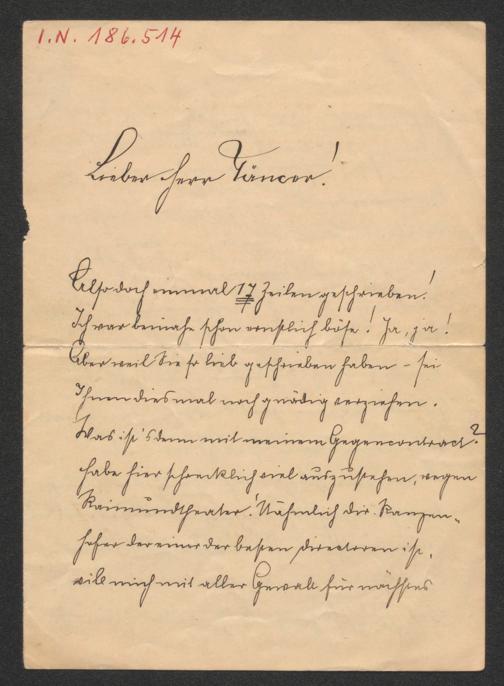 I.N. 186.514
Lieber Herr Täncor!
Also doch einmal 17 Zeilen geschrieben!
Ich war beinahe schon ernstlich böse! Ja, ja!
Aber weil Sie so lieb geschrieben haben – sei
Ihnen diesmal noch gnädig verziehen.
Was ist's denn mit meinem Gegencontract?
habe hier schrecklich viel auszustehen, wegen
Raimundtheater! Nähmlich Dir. Ranzen-
hofer der einer der besten Directoren ist,
will mich mit aller Gewalt für nächstes